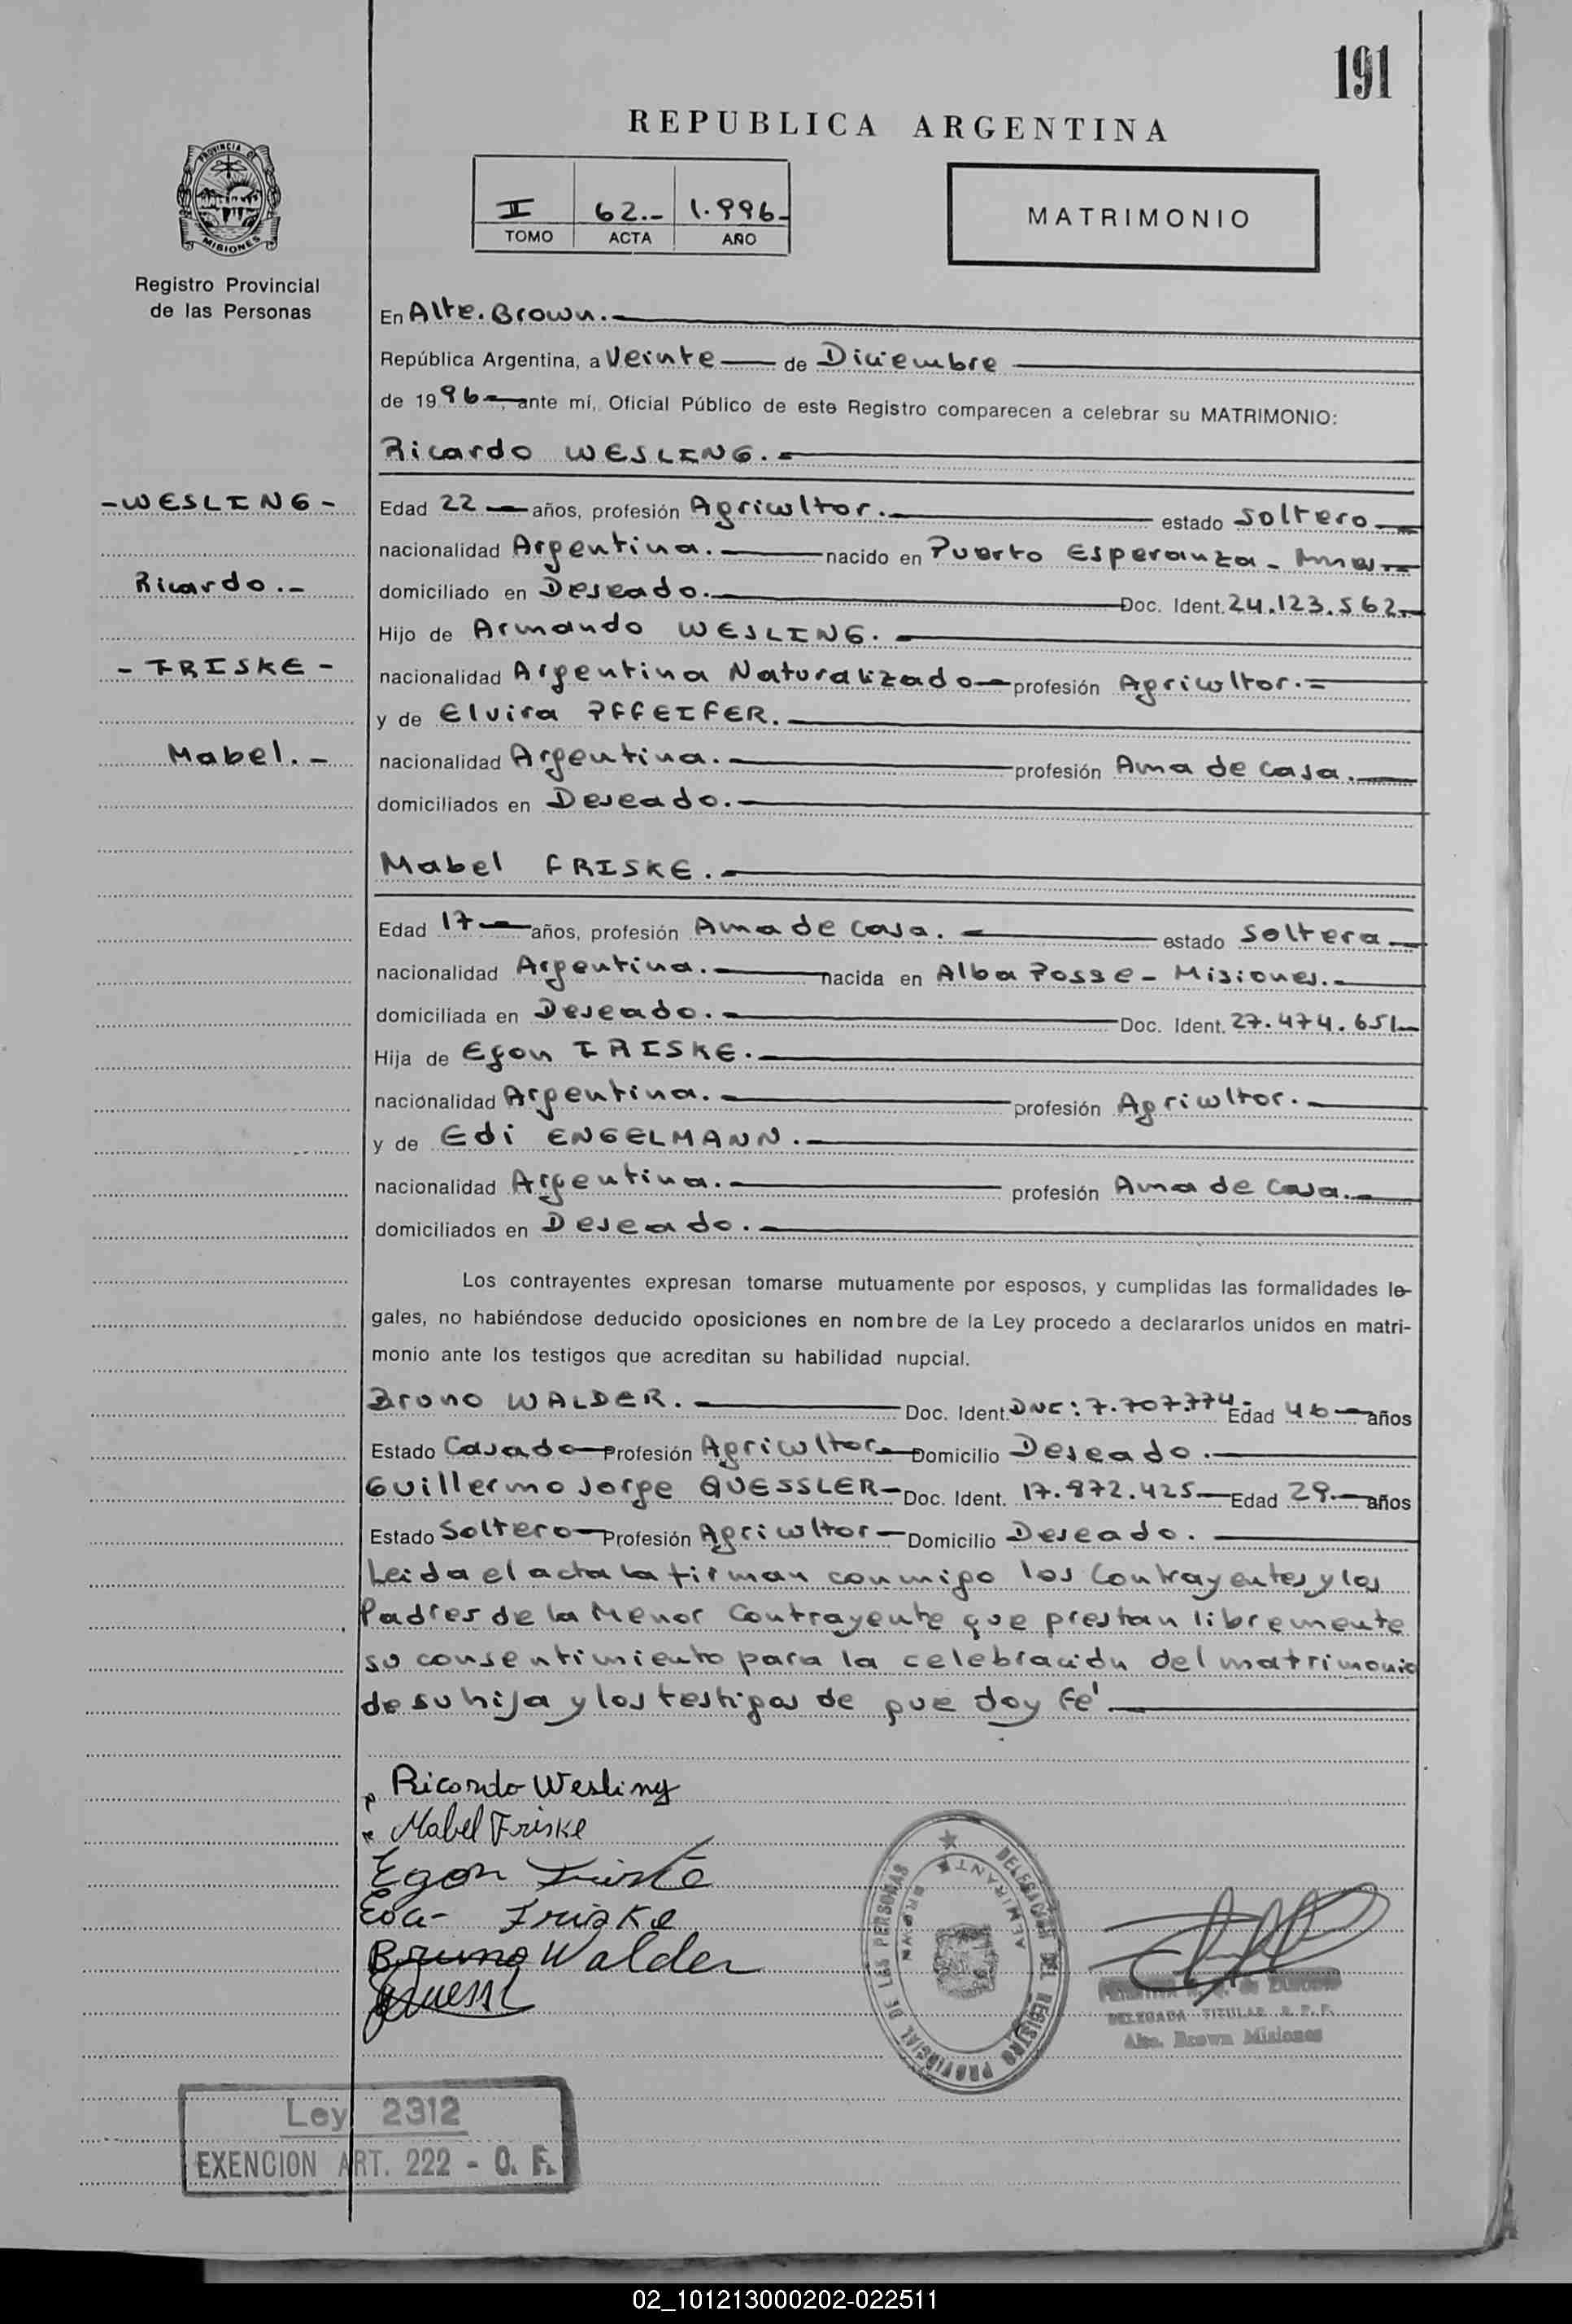 191
REPUBLICA ARGENTINA
PROVINCIA DE
MISIONES
II 62.- 1.996-
TOMO ACTA AÑO
MATRIMONIO
Registro Provincial
de las Personas
En Alte. Brown.-
República Argentina, a Veinte de Diciembre
de 1996-, ante mí, Oficial Público de este Registro comparecen a celebrar su MATRIMONIO:
Ricardo WESLING.-
-WESLING-
Edad 22 años, profesión Agricultor.- estado Soltero
nacionalidad Argentina.- nacido en Puerto Esperanza -
Ricardo.-
domiciliado en Deseado.- Doc. Ident. 24.123.562.-
Hijo de Armando WESLING.-
-FRISKE-
nacionalidad Argentina Naturalizado- profesión Agricultor.-
y de Elvira PFFEIFER.-
Mabel.-
nacionalidad Argentina.- profesión Ama de casa.-
domiciliados en Deseado.-
Mabel FRISKE.-
Edad 17- años, profesión Ama de casa.- estado Soltera-
nacionalidad Argentina.- nacida en Alba Posse - Misiones.-
domiciliada en Deseado.- Doc. Ident. 27.474.651-
Hija de Egon FRISKE.-
nacionalidad Argentina.- profesión Agricultor.-
y de Edi ENGELMANN.-
nacionalidad Argentina.- profesión Ama de casa.-
domiciliados en Deseado.-
Los contrayentes expresan tomarse mutuamente por esposos, y cumplidas las formalidades le-
gales, no habiéndose deducido oposiciones en nombre de la Ley procedo a declararlos unidos en matri-
monio ante los testigos que acreditan su habilidad nupcial.
Bruno WALDER.- Doc. Ident. DNI: 7.707.774.- Edad 46- años
Estado Casado- Profesión Agricultor- Domicilio Deseado.-
Guillermo Jorge QUESSLER- Doc. Ident. 17.872.425- Edad 29.- años
Estado Soltero- Profesión Agricultor- Domicilio Deseado.
Leida el acta la firman conmigo los Contrayentes y los
Padres de la Menor Contrayente que prestan libremente
su consentimiento para la celebración del matrimonio
de su hija y los testigos de que doy Fé.-
Ricardo Wesling
Mabel Friske
Egon Friske
Friske
Bruno Walder
DELEGACION DEL REGISTRO PROVINCIAL DE LAS PERSONAS
ALMIRANTE BROWN
DELEGADA TITULAR R. P. P.
Alte. Brown Misiones
Ley 2312
EXENCION ART. 222 - O. F.
02_101213000202-022511